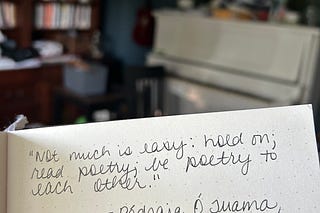 "Not much is easy: hold on;
read poetry; be poetry to
each other."
- Pádraig Ó Tuama,